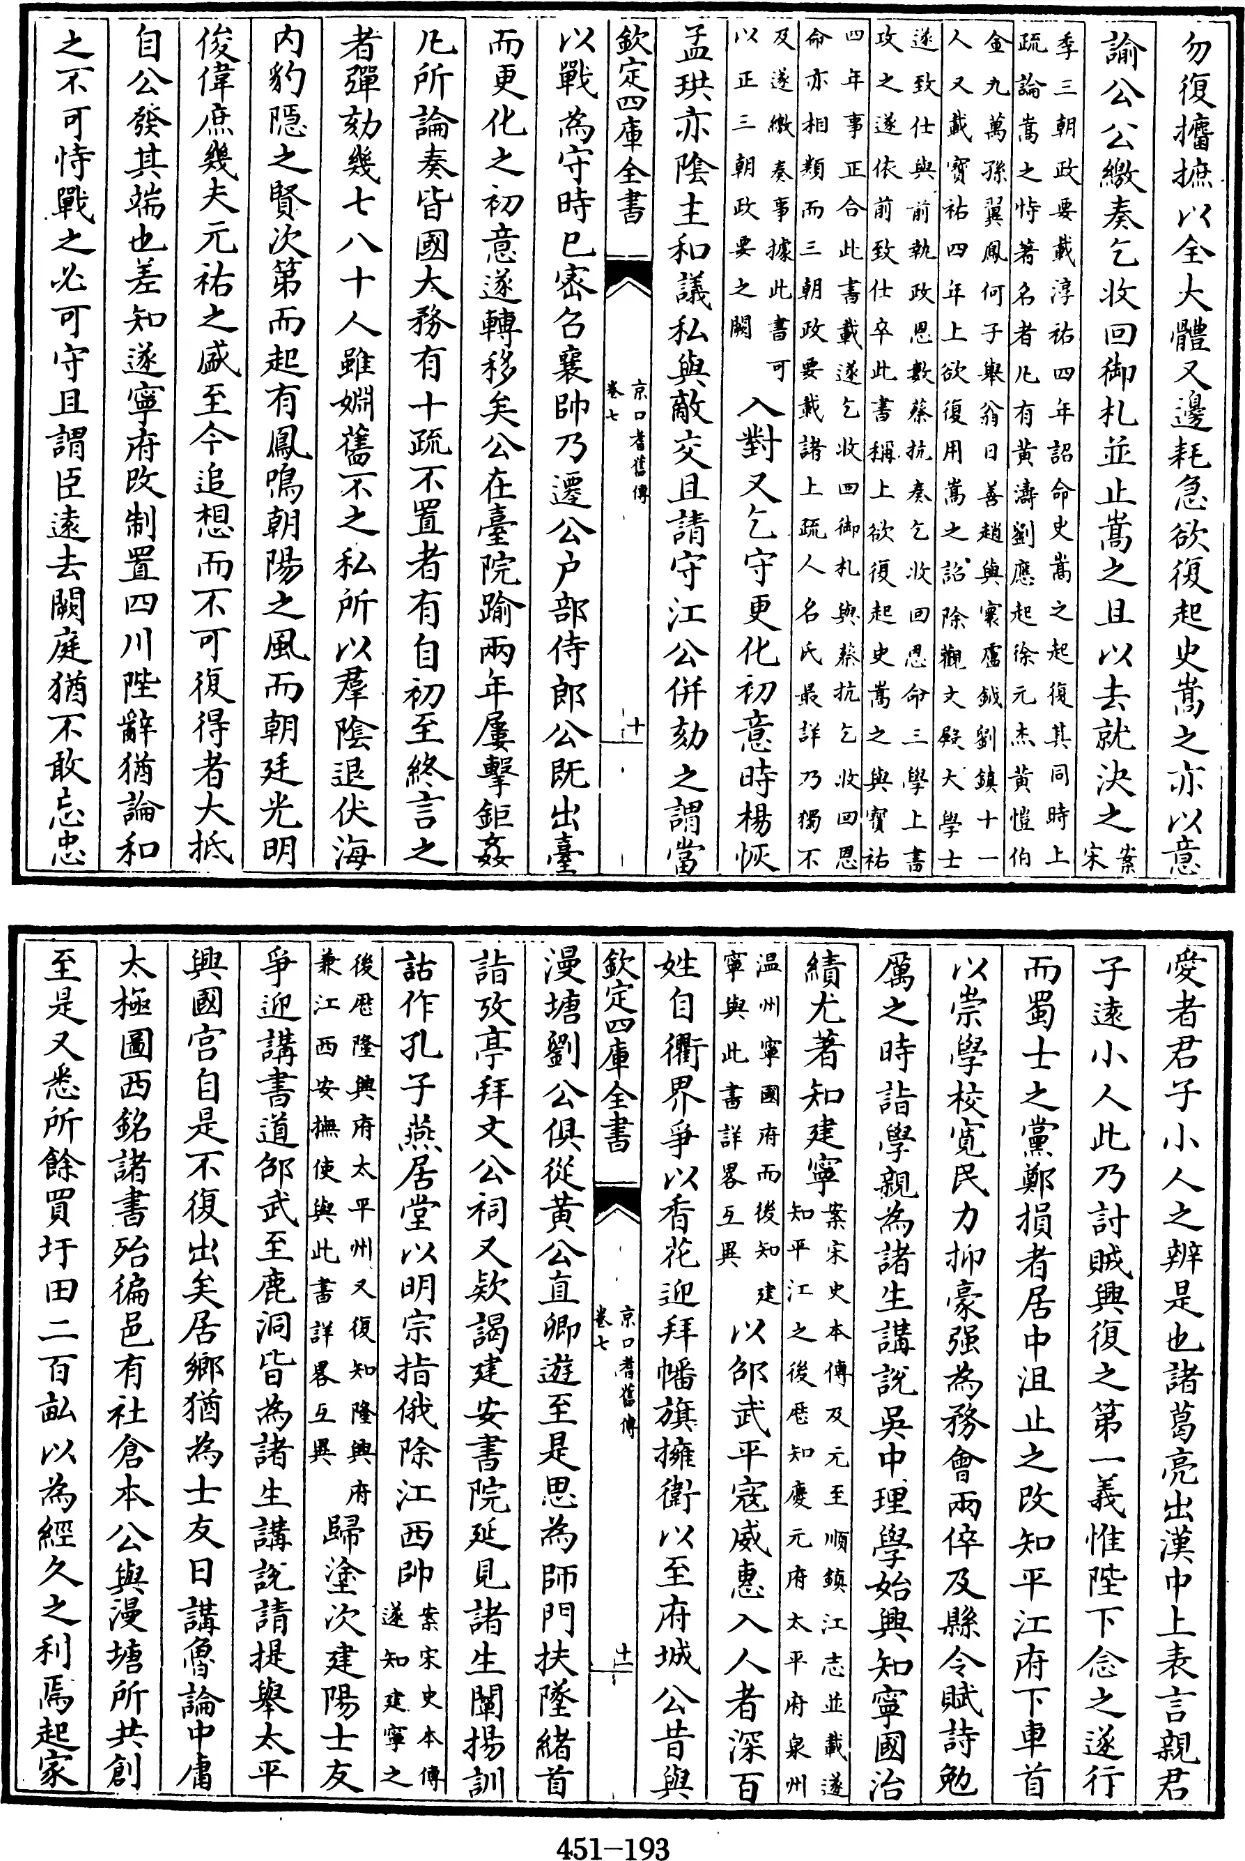 勿復攟摭以全大體又邊耗急欲復起史嵩之亦以意
諭公公繳奏乞收回御札並止嵩之且以去就決之案
宋
季三朝政要載淳祐四年詔命史嵩之起復其同時上
疏論嵩之恃著名者凡有黃濤劉應起徐元杰黃愷伯
金九萬孫翼鳳何子舉翁日善趙與寰盧鉞劉鎮十一
人又載寶祐四年上欲復用嵩之詔除觀文殿大學士
遂致仕與前執政恩數蔡抗奏乞收回恩命三學上書
攻之遂依前致仕卒此書稱上欲復起史嵩之與寶祐
四年事正合此書載遂乞收回御札與蔡抗乞收回恩
命亦相類而三朝政要載諸上疏人名氏最詳乃獨不
及遂繳奏事據此書可
以正三朝政要之闕
入對又乞守更化初意時楊恢
孟珙亦陰主和議私與敵交且請守江公併劾之謂當
欽定四庫全書
京口耆舊傳
卷七
十
以戰為守時已密召襄帥乃遷公户部侍郎公既出臺
而更化之初意遂轉移矣公在臺院踰兩年屢擊鉅姦
凡所論奏皆國大務有十疏不置者有自初至終言之
者彈劾幾七八十人雖婣舊不之私所以羣陰退伏海
内豹隱之賢次第而起有鳳鳴朝陽之風而朝廷光明
俊偉庶幾夫元祐之盛至今追想而不可復得者大抵
自公發其端也差知遂寧府改制置四川陛辭猶論和
之不可恃戰之必可守且謂臣遠去闕庭猶不敢忘忠
愛者君子小人之辨是也諸葛亮出漢中上表言親君
子遠小人此乃討賊興復之第一義惟陛下念之遂行
而蜀士之黨鄭損者居中沮止之改知平江府下車首
以崇學校寛民力抑豪强為務會兩倅及縣令賦詩勉
厲之時詣學親為諸生講説吳中理學始興知寧國治
績尤著知建寧
案宋史本傳及元至順鎮江志並載遂
知平江之後厯知慶元府太平府泉州
温州寧國府而後知建
寧與此書詳畧互異
以邵武平寇威惠入人者深百
姓自衢界爭以香花迎拜幡旗擁衛以至府城公昔與
欽定四庫全書
京口耆舊傳
卷七
十一
漫塘劉公俱從黃公直卿遊至是思為師門扶墜緒首
詣攷亭拜文公祠又欵謁建安書院延見諸生闡揚訓
詁作孔子燕居堂以明宗指俄除江西帥
案宋史本傳
遂知建寧之
後厯隆興府太平州又復知隆興府
兼江西安撫使與此書詳畧互異
歸塗次建陽士友
爭迎講書道邵武至鹿洞皆為諸生講説請提舉太平
興國宫自是不復出矣居鄉猶為士友日講魯論中庸
太極圖西銘諸書殆徧邑有社倉本公與漫塘所共創
至是又悉所餘買圩田二百畝以為經久之利焉起家
451-193